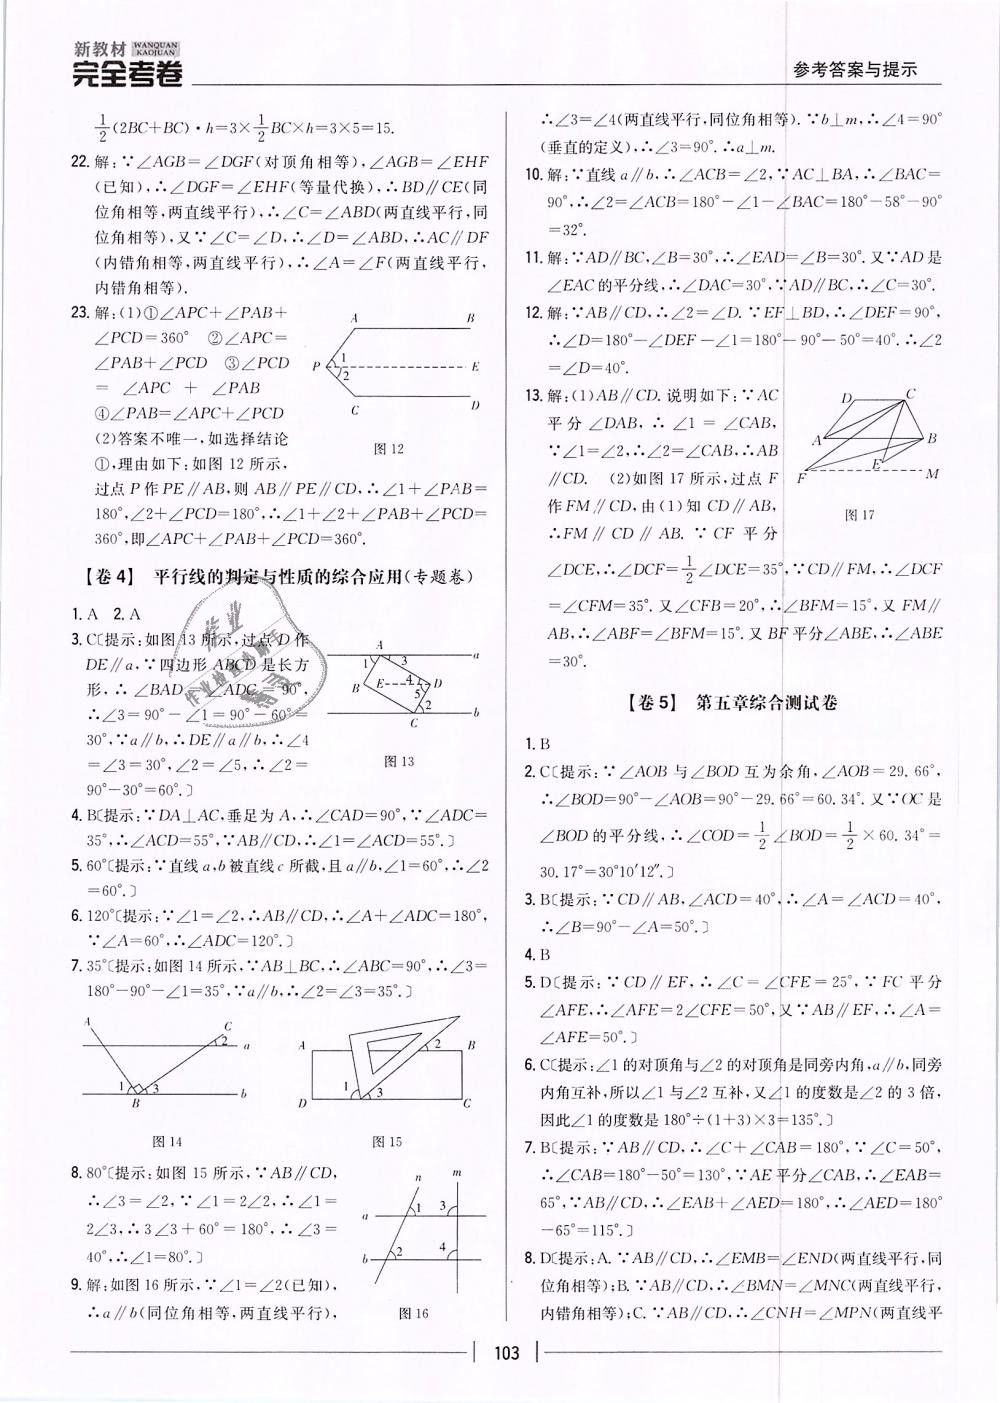 新教材 WANQUAN KAOJUAN
完全考卷
参考答案与提示
1/2(2BC+BC)·h=3×1/2BC×h=3×5=15.
22. 解:∵∠AGB=∠DGF(对顶角相等),∠AGB=∠EHF
(已知),∴∠DGF=∠EHF(等量代换),∴BD∥CE(同
位角相等,两直线平行),∴∠C=∠ABD(两直线平行,同
位角相等),又∵∠C=∠D,∴∠D=∠ABD,∴AC∥DF
(内错角相等,两直线平行),∴∠A=∠F(两直线平行,
内错角相等).
23. 解:(1)①∠APC+∠PAB+
∠PCD=360° ②∠APC=
∠PAB+∠PCD ③∠PCD
=∠APC+∠PAB
④∠PAB=∠APC+∠PCD
(2)答案不唯一,如选择结论
①,理由如下:如图 12 所示,
A B
P 1 2 E
C D
图 12
过点 P 作 PE∥AB,则 AB∥PE∥CD,∴∠1+∠PAB=
180°,∠2+∠PCD=180°,∴∠1+∠2+∠PAB+∠PCD=
360°,即∠APC+∠PAB+∠PCD=360°.
【卷 4】 平行线的判定与性质的综合应用(专题卷)
1. A 2. A
3. C〔提示:如图 13 所示,过点 D 作
DE∥a,∵四边形 ABCD 是长方
形,∴∠BAD=∠ADC=90°,
∴∠3=90°-∠1=90°-60°=
30°,∵a∥b,∴DE∥a∥b,∴∠4
=∠3=30°,∠2=∠5,∴∠2=
90°-30°=60°.〕
A
1 3 a
B E 4 D
5
2 b
C
图 13
4. B〔提示:∵DA⊥AC,垂足为 A,∴∠CAD=90°,∵∠ADC=
35°,∴∠ACD=55°,∵AB∥CD,∴∠1=∠ACD=55°.〕
5. 60°〔提示:∵直线 a,b 被直线 c 所截,且 a∥b,∠1=60°,∴∠2
=60°.〕
6. 120°〔提示:∵∠1=∠2,∴AB∥CD,∴∠A+∠ADC=180°,
∵∠A=60°,∴∠ADC=120°.〕
7. 35°〔提示:如图 14 所示,∵AB⊥BC,∴∠ABC=90°,∴∠3=
180°-90°-∠1=35°,∵a∥b,∴∠2=∠3=35°.〕
A C
2 a
1 3 b
B
图 14
A 2 B
1 3
D C
图 15
8. 80°〔提示:如图 15 所示,∵AB∥CD,
∴∠3=∠2,∵∠1=2∠2,∴∠1=
2∠3,∴3∠3+60°=180°,∴∠3=
40°,∴∠1=80°.〕
9. 解:如图 16 所示,∵∠1=∠2(已知),
∴a∥b(同位角相等,两直线平行),
n m
a 1 3
b 2 4
图 16
∴∠3=∠4(两直线平行,同位角相等).∵b⊥m,∴∠4=90°
(垂直的定义),∴∠3=90°.∴a⊥m.
10. 解:∵直线 a∥b,∴∠ACB=∠2,∵AC⊥BA,∴∠BAC=
90°,∴∠2=∠ACB=180°-∠1-∠BAC=180°-58°-90°
=32°.
11. 解:∵AD∥BC,∠B=30°,∴∠EAD=∠B=30°.又∵AD 是
∠EAC 的平分线,∴∠DAC=30°,∵AD∥BC,∴∠C=30°.
12. 解:∵AB∥CD,∴∠2=∠D.∵EF⊥BD,∴∠DEF=90°,
∴∠D=180°-∠DEF-∠1=180°-90°-50°=40°.∴∠2
=∠D=40°.
13. 解:(1)AB∥CD.说明如下:∵AC
平分∠DAB,∴∠1=∠CAB,
∵∠1=∠2,∴∠2=∠CAB,∴AB
∥CD. (2)如图 17 所示,过点 F
作 FM∥CD,由(1)知 CD∥AB,
∴FM∥CD∥AB.∵CF 平分
D C
A B
E
F M
图 17
∠DCE,∴∠DCF=1/2∠DCE=35°,∵CD∥FM,∴∠DCF
=∠CFM=35°.又∠CFB=20°,∴∠BFM=15°,又 FM∥
AB,∴∠ABF=∠BFM=15°.又 BF 平分∠ABE,∴∠ABE
=30°.
【卷 5】 第五章综合测试卷
1. B
2. C〔提示:∵∠AOB 与∠BOD 互为余角,∠AOB=29.66°,
∴∠BOD=90°-∠AOB=90°-29.66°=60.34°.又∵OC 是
∠BOD 的平分线,∴∠COD=1/2∠BOD=1/2×60.34°=
30.17°=30°10′12″.〕
3. B〔提示:∵CD∥AB,∠ACD=40°,∴∠A=∠ACD=40°,
∴∠B=90°-∠A=50°.〕
4. B
5. D〔提示:∵CD∥EF,∴∠C=∠CFE=25°,∵FC 平分
∠AFE,∴∠AFE=2∠CFE=50°,又∵AB∥EF,∴∠A=
∠AFE=50°.〕
6. C〔提示:∠1 的对顶角与∠2 的对顶角是同旁内角,a∥b,同旁
内角互补,所以∠1 与∠2 互补,又∠1 的度数是∠2 的 3 倍,
因此∠1 的度数是 180°÷(1+3)×3=135°.〕
7. B〔提示:∵AB∥CD,∴∠C+∠CAB=180°,∵∠C=50°,
∴∠CAB=180°-50°=130°,∵AE 平分∠CAB,∴∠EAB=
65°,∵AB∥CD,∴∠EAB+∠AED=180°,∴∠AED=180°
-65°=115°.〕
8. D〔提示:A.∵AB∥CD,∴∠EMB=∠END(两直线平行,同
位角相等);B.∵AB∥CD,∴∠BMN=∠MNC(两直线平行,
内错角相等);C.∵AB∥CD,∴∠CNH=∠MPN(两直线平
103